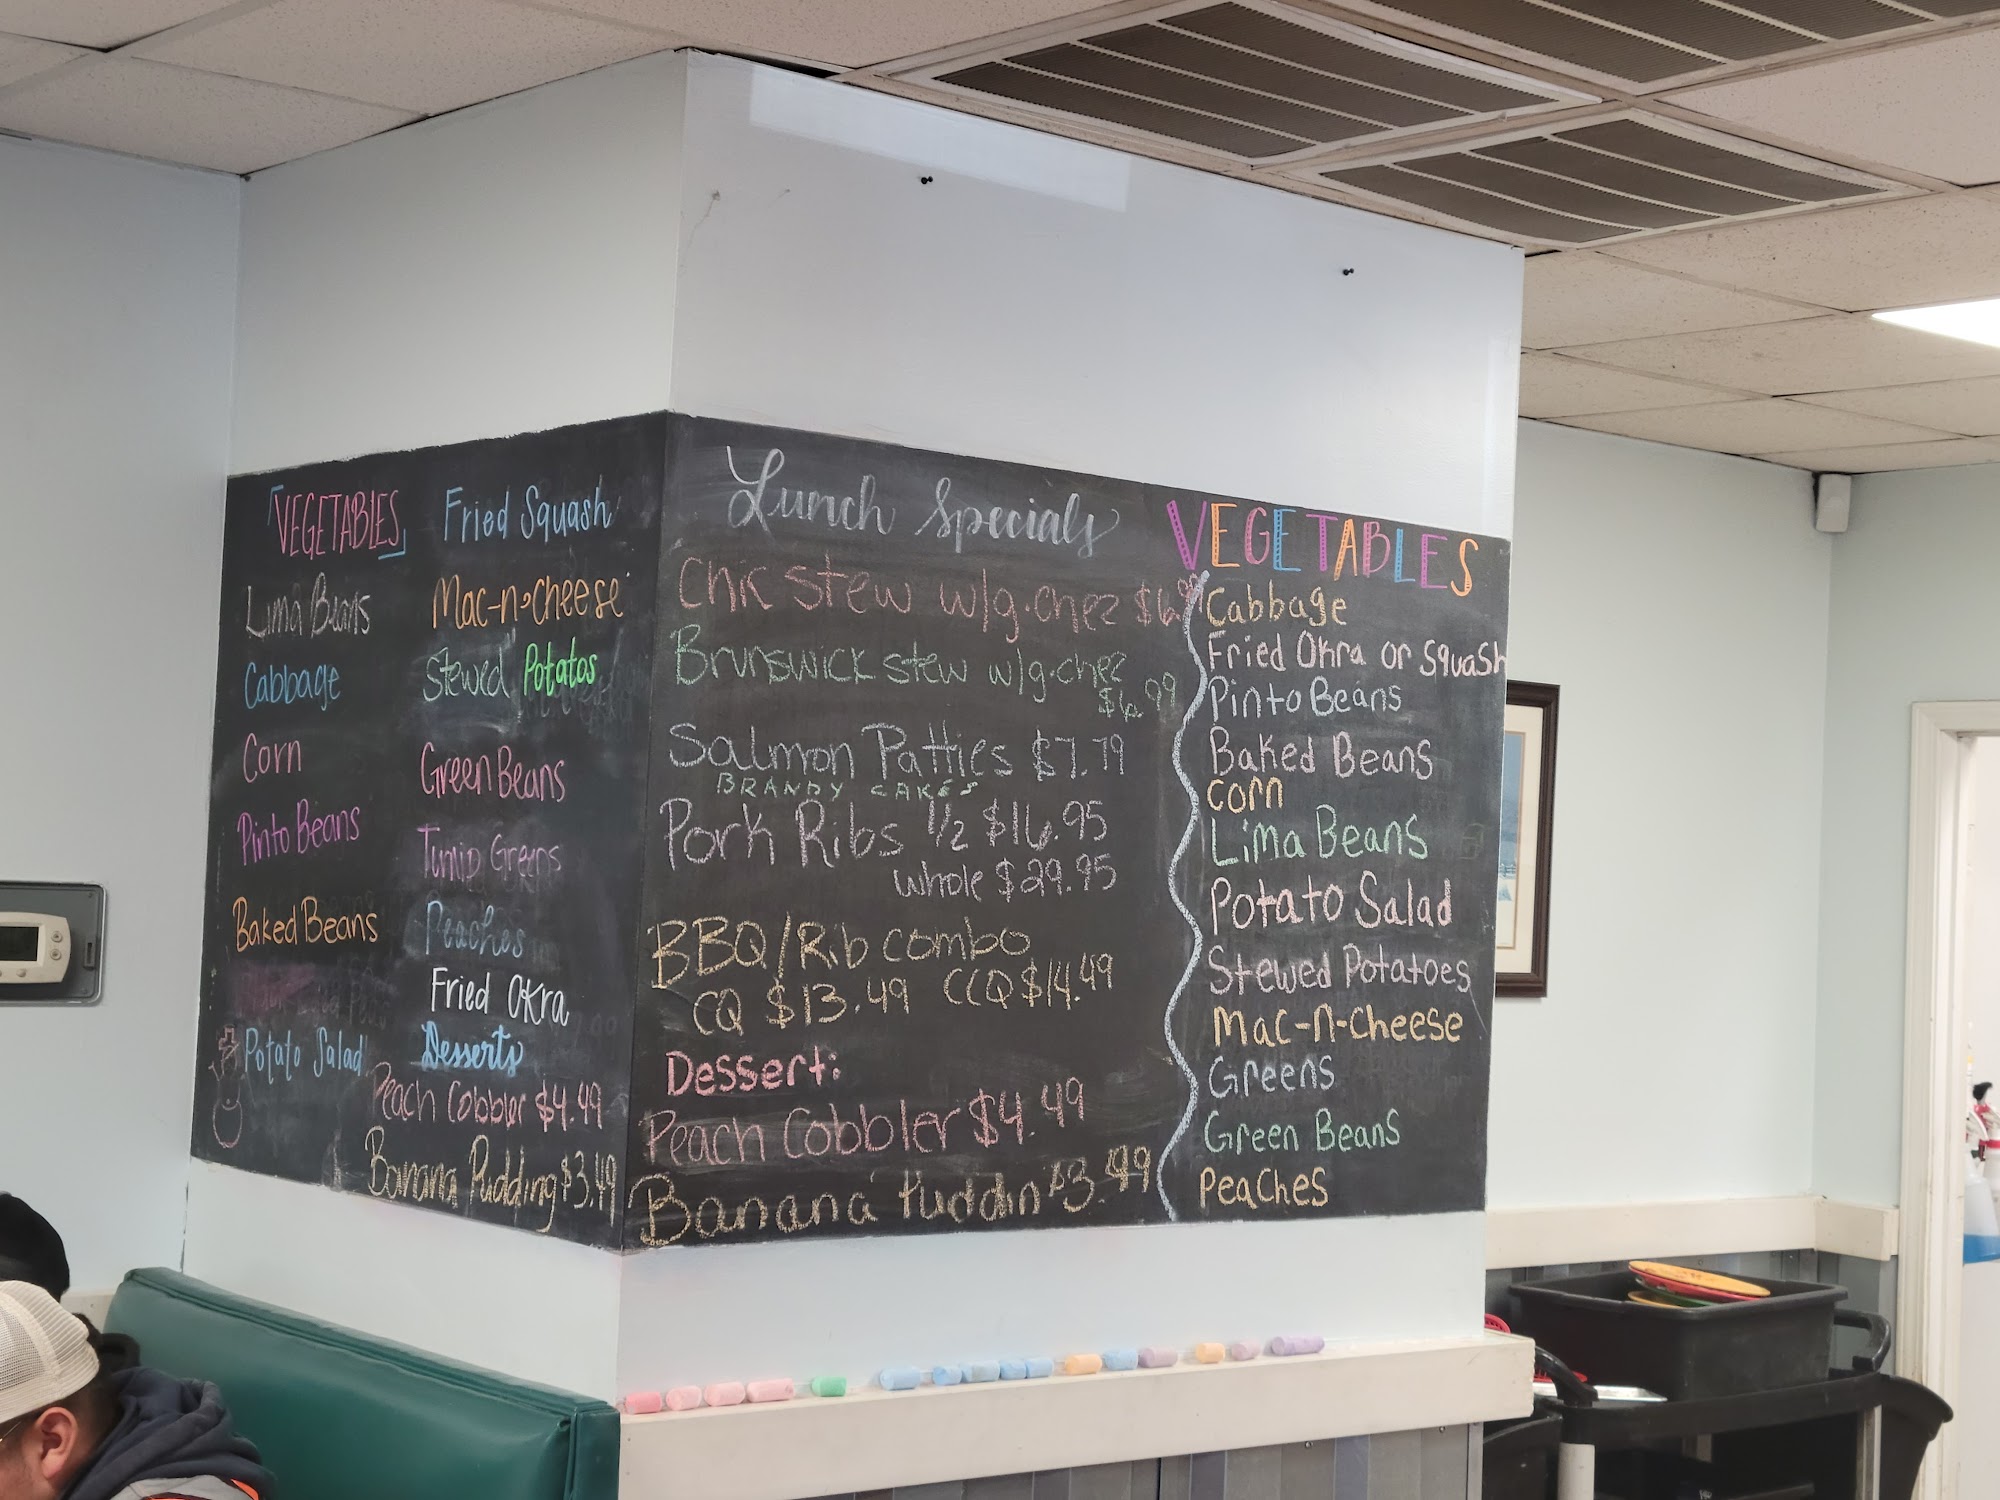 VEGETABLES
Lima Beans
Cabbage
Corn
Pinto Beans
Baked Beans
Potato Salad
Fried Squash
Mac-n-cheese
Stewed Potatos
Green Beans
Turnip Greens
Peaches
Fried Okra
Desserts
Peach Cobbler $4.49
Banana Pudding $3.49
Lunch Specials
Chic stew w/g.chez $6.99
Brunswick stew w/g.chez
$6.99
Salmon Patties $7.79
BRANDY CAKES
Pork Ribs 1/2 $16.95
whole $29.95
BBQ/Rib combo
CQ $13.49 CCQ $14.49
Dessert:
Peach Cobbler $4.49
Banana Puddin $3.49
VEGETABLES
Cabbage
Fried Okra or Squash
Pinto Beans
Baked Beans
Corn
Lima Beans
Potato Salad
Stewed Potatoes
Mac-n-cheese
Greens
Green Beans
Peaches